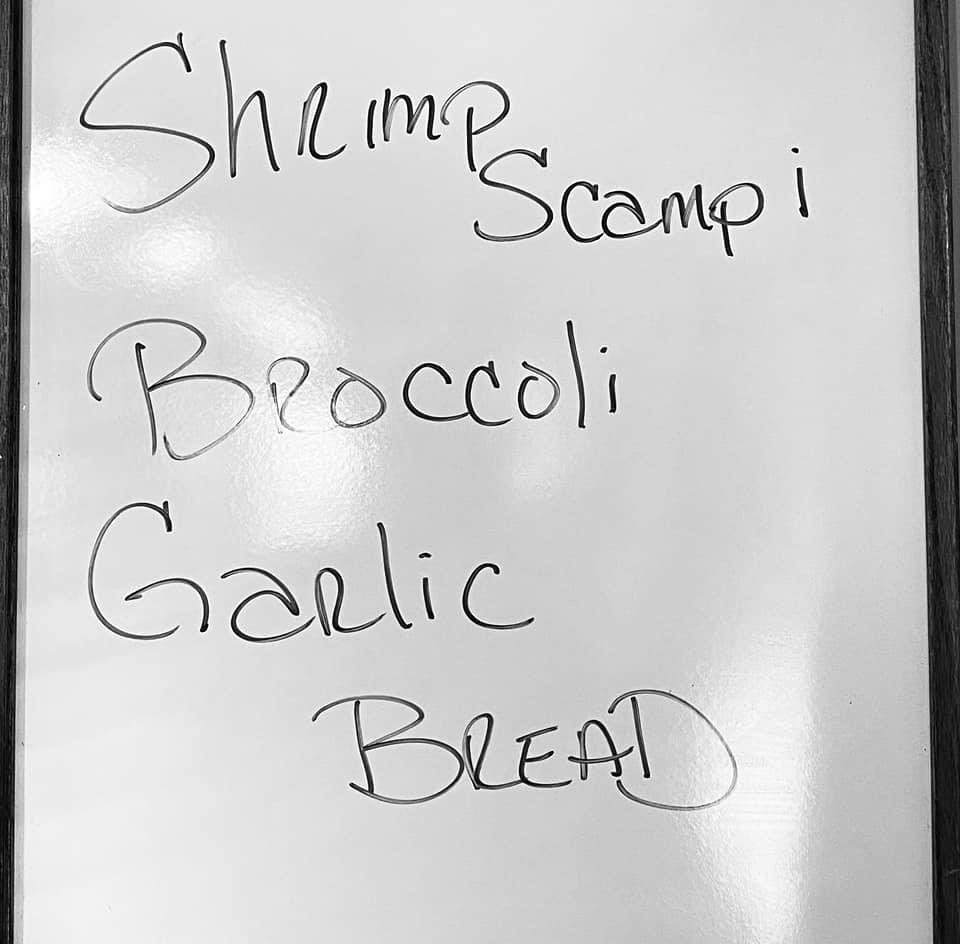 Shrimp
Scampi
Broccoli
Garlic
BREAD